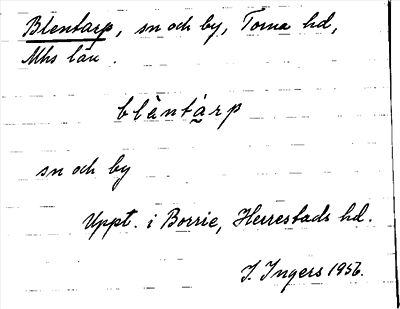 Blentarp, sn och by, Torna hd,
Mhs län.
blèntàrp
sn och by
Uppt. i Borrie, Herrestads hd.
I. Ingers 1956.